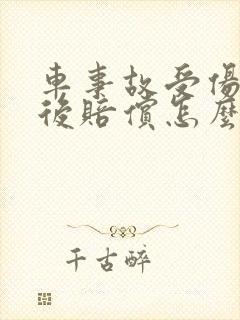 車事故受傷
後賠償怎麼
千古醉